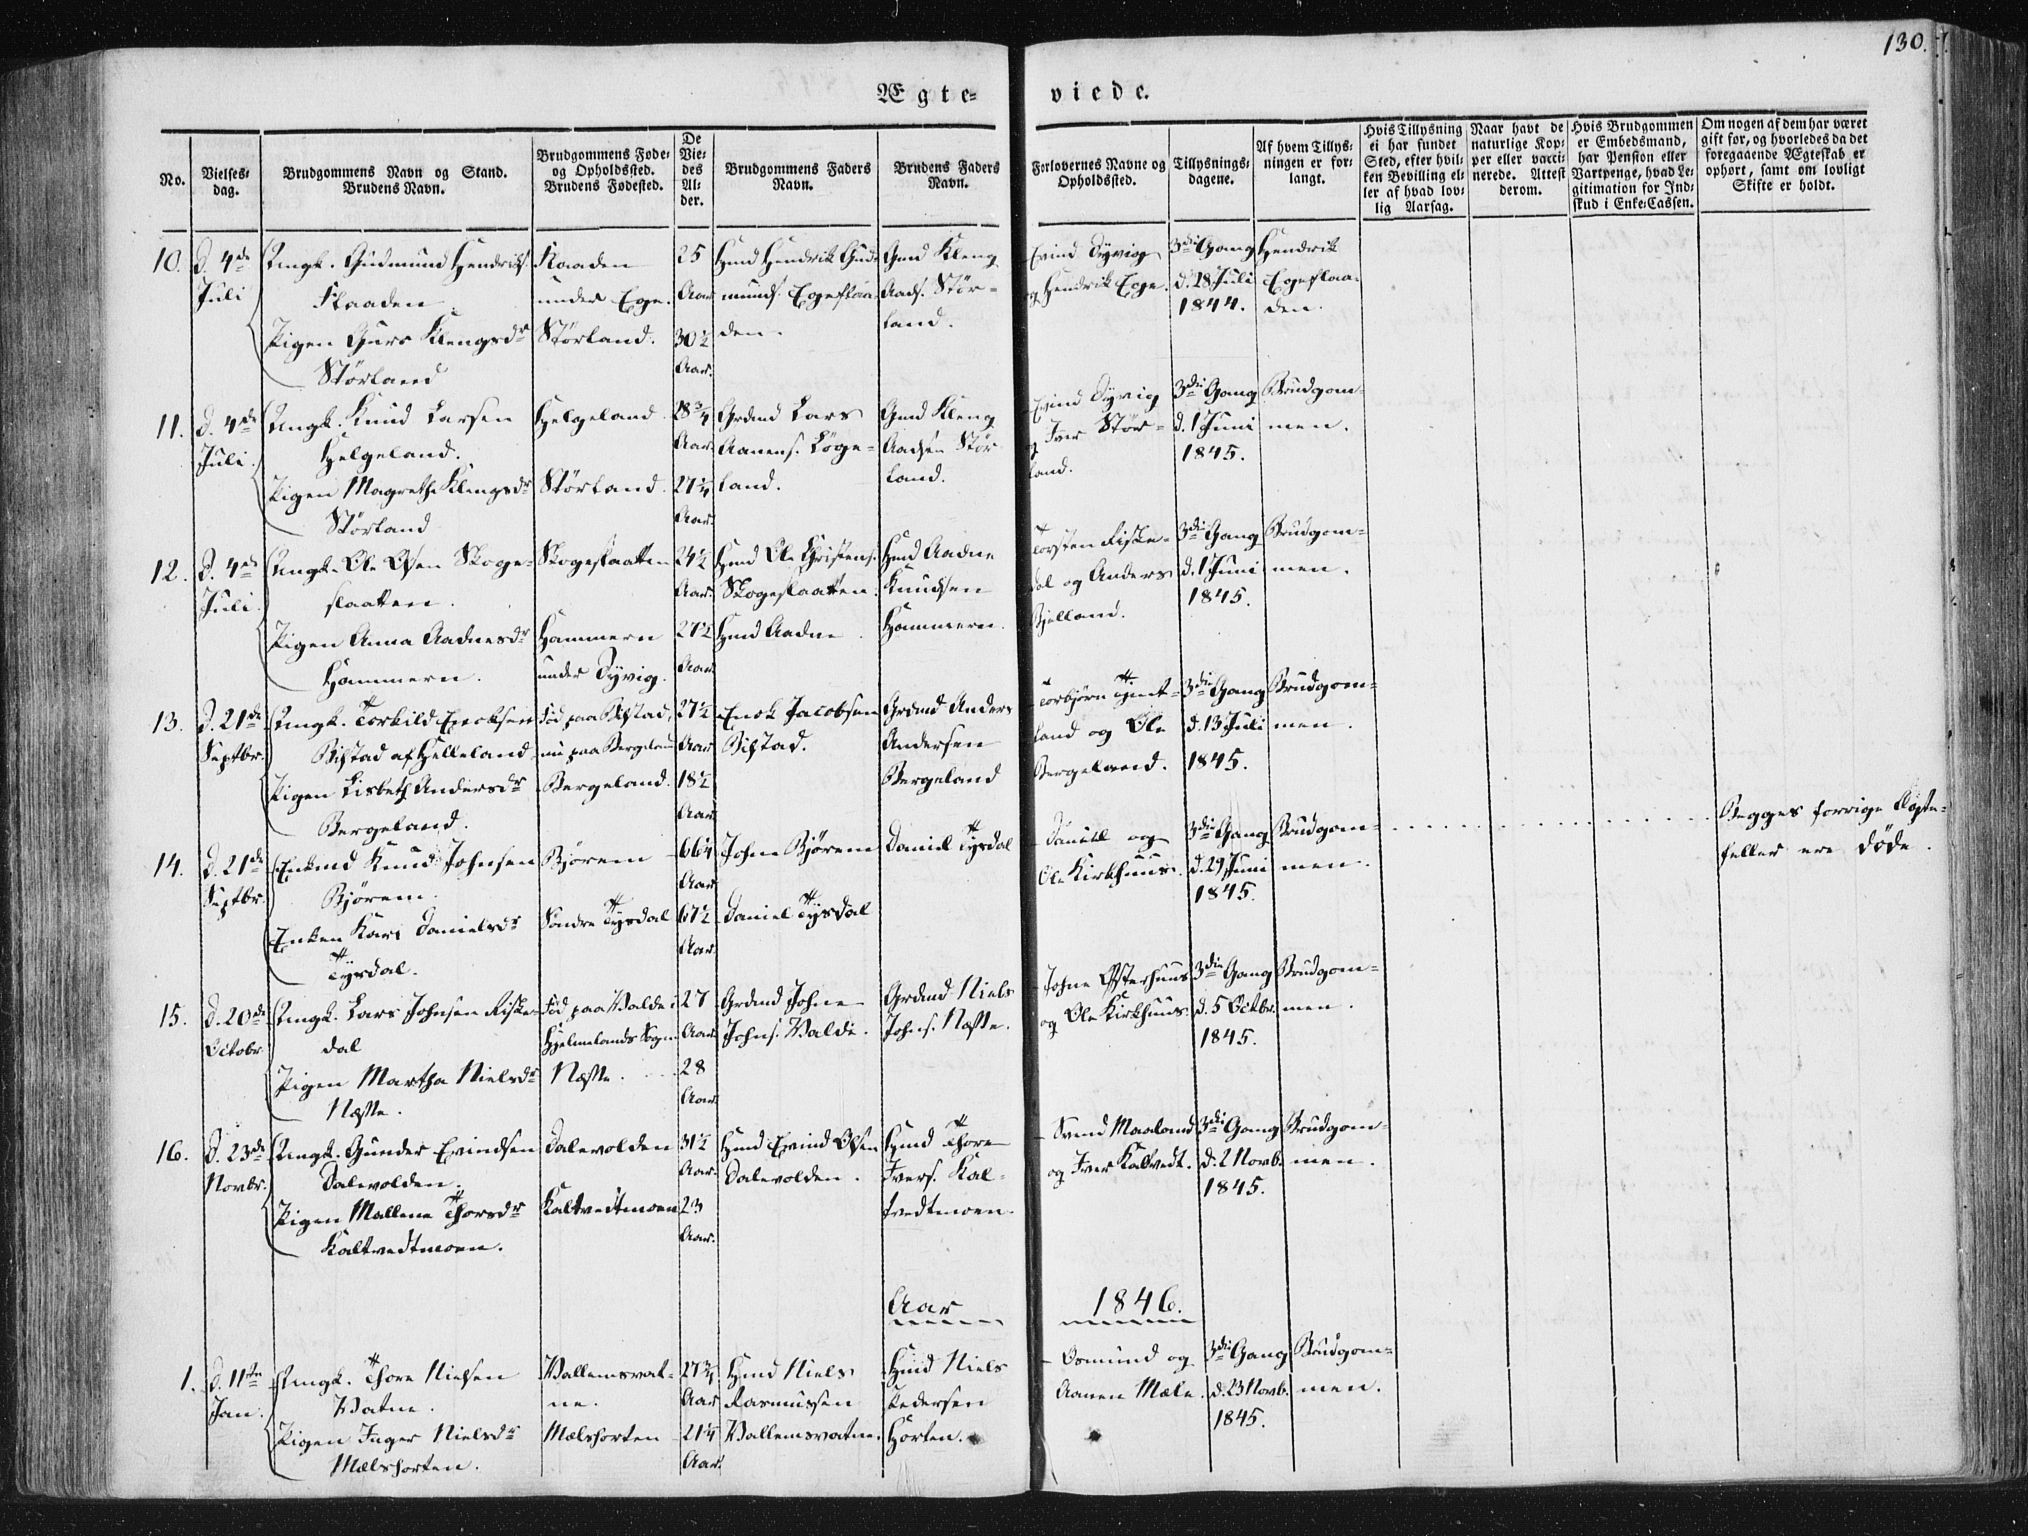 130.
Ægte-
viede.
No.
Vielses-
dag.
Brudgommens Navn og Stand.
Brudens Navn.
Brudgommens Føde-
og Opholdssted.
Brudens Fødested.
De
Vie-
des
Al-
der.
Brudgommens Faders
Navn.
Brudens Faders
Navn.
Forlovernes Navne og
Opholdssted.
Tillysnings-
dagene.
Af hvem Tillys-
ningen er for-
langt.
Hvis Tillysning
ei har fundet
Sted, efter hvil-
ken Bevilling el-
ler af hvad lov-
lig Aarsag.
Naar havt de
naturlige Kop-
per eller vacci-
nerede. Attest
derom.
Hvis Brudgommen
er Embedsmand,
har Pension eller
Vartpenge, hvad Le-
gitimation for Ind-
skud i Enke-Cassen.
Om nogen af dem har været
gift før, og hvorledes da det
foregaaende Ægteskab er
ophørt, samt om lovligt
Skifte er holdt.
10.
D. 4de
Juli
Ungk. Gudmund Hendriks.
Flaaden
Pigen Guro Klengsdr
Størland
Flaaden
under Ege.
Størland.
25
Aar
30½
Aar.
Hmd Hendrik Gud-
munds. Egeflaa-
den.
Gmd Kleng
Aads. Stør-
land.
Eivind Dyvig
og Hendrik Ege.
3die Gang
d. 28 Juli
1844.
Hendrik
Egeflaa-
den.
11.
D. 4de
Juli.
Ungk. Knud Larsen
Helgeland.
Pigen Magrethe Klengsdr
Størland
Helgeland
Størland.
18¾
Aar
27¼
Aar.
Grdmd Lars
Aanens. Løge-
land.
Gmd Kleng
Aadsen Stør
land.
Eivind Dyvig
og Iver Stør-
land.
3die Gang
d. 1 Juni
1845.
Brudgom-
men.
12.
D. 4de
Juli.
Ungk. Ole Olsen Skoge-
flaatten.
Pigen Anna Aadnesdr
Hammern.
Skogeflaatten
Hammern
under Dyvig.
24½
Aar.
27½
Aar.
Hmd Ole Christens.
Skogeflaatten.
Hmd Aadne
Hmd Aadne
Knudsen
Hammern.
Torsten Fiske-
dal og Anders
Bjelland.
3die Gang
d. 1 Juni
1845.
Brudgom-
men.
13.
D. 21de
Septbr.
Ungk. Torkild Enoksen
Bistad af Helleland
Pigen Lisbeth Andersdr
Bergeland.
Fød paa Bistad,
nu paa Bergeland
Bergeland.
27½
Aar
18½
Aar
Enok Jacobsen
Bistad.
Grdmd Anders
Andersen
Bergeland
Torbjørn
land og Ole
Bergeland.
3die Gang
d. 13 Juli
1845.
Brudgom-
men.
14.
D. 21de
Septbr.
Enkemd Knud Johnsen
Bjørem.
Enken Kari Danielsdr
Tysdal.
Bjørem
Søndre Tysdal
66¼
Aar
67½
Aar
John Bjørem
Daniel Tysdal
Daniel Tysdal
Daniel og
Ole Kirkhuus.
3die Gang
d. 29 Juni
1845.
Brudgom-
men.
Begges forrige Ægte-
feller ere døde.
15.
D. 20de
Octobr.
Ungk. Lars Johnsen Fiske-
dal
Pigen Martha Nielsdr
Næsse.
Fød paa Valde i
Hjelmelands Sogn
Næsse.
27
Aar
28
Aar
Grdmd John
Johns. Valde.
Grdmd Niels
Johns. Næsse.
John Østerhuus
og Ole Kirkhuus.
3die Gang
d. 5 Octbr.
1845.
Brudgom-
men.
16.
D. 23de
Novbr.
Ungk. Gunder Eivindsen
Dalevolden.
Pigen Mallene Thorsdr
Kaltvedtmoen.
Dalevolden
Kaltvedtmoen
31½
Aar.
23
Aar.
Hmd Eivind Olsen
Dalevolden.
Hmd Thore
Ivers. Kal-
tvedtmoen.
Svend Maaland
og Iver Kaltvedt.
3die Gang
d. 2 Novb.
1845.
Brudgom-
men.
Aar
1846.
1.
D. 11te
Jan.
Ungk. Thore Nielsen
Vatne.
Pigen Inger Nielsdr
Mælshorten.
Vallemsvat-
ne.
Mælshorten
27¾
Aar
21¼
Aar.
Hmd Niels
Rasmussen
Vallemsvatne.
Hmd Niels
Pedersen
Horten.
Osmund og
Aanen Mæle.
3die Gang
d. 23 Novb.
1845.
Brudgom-
men.